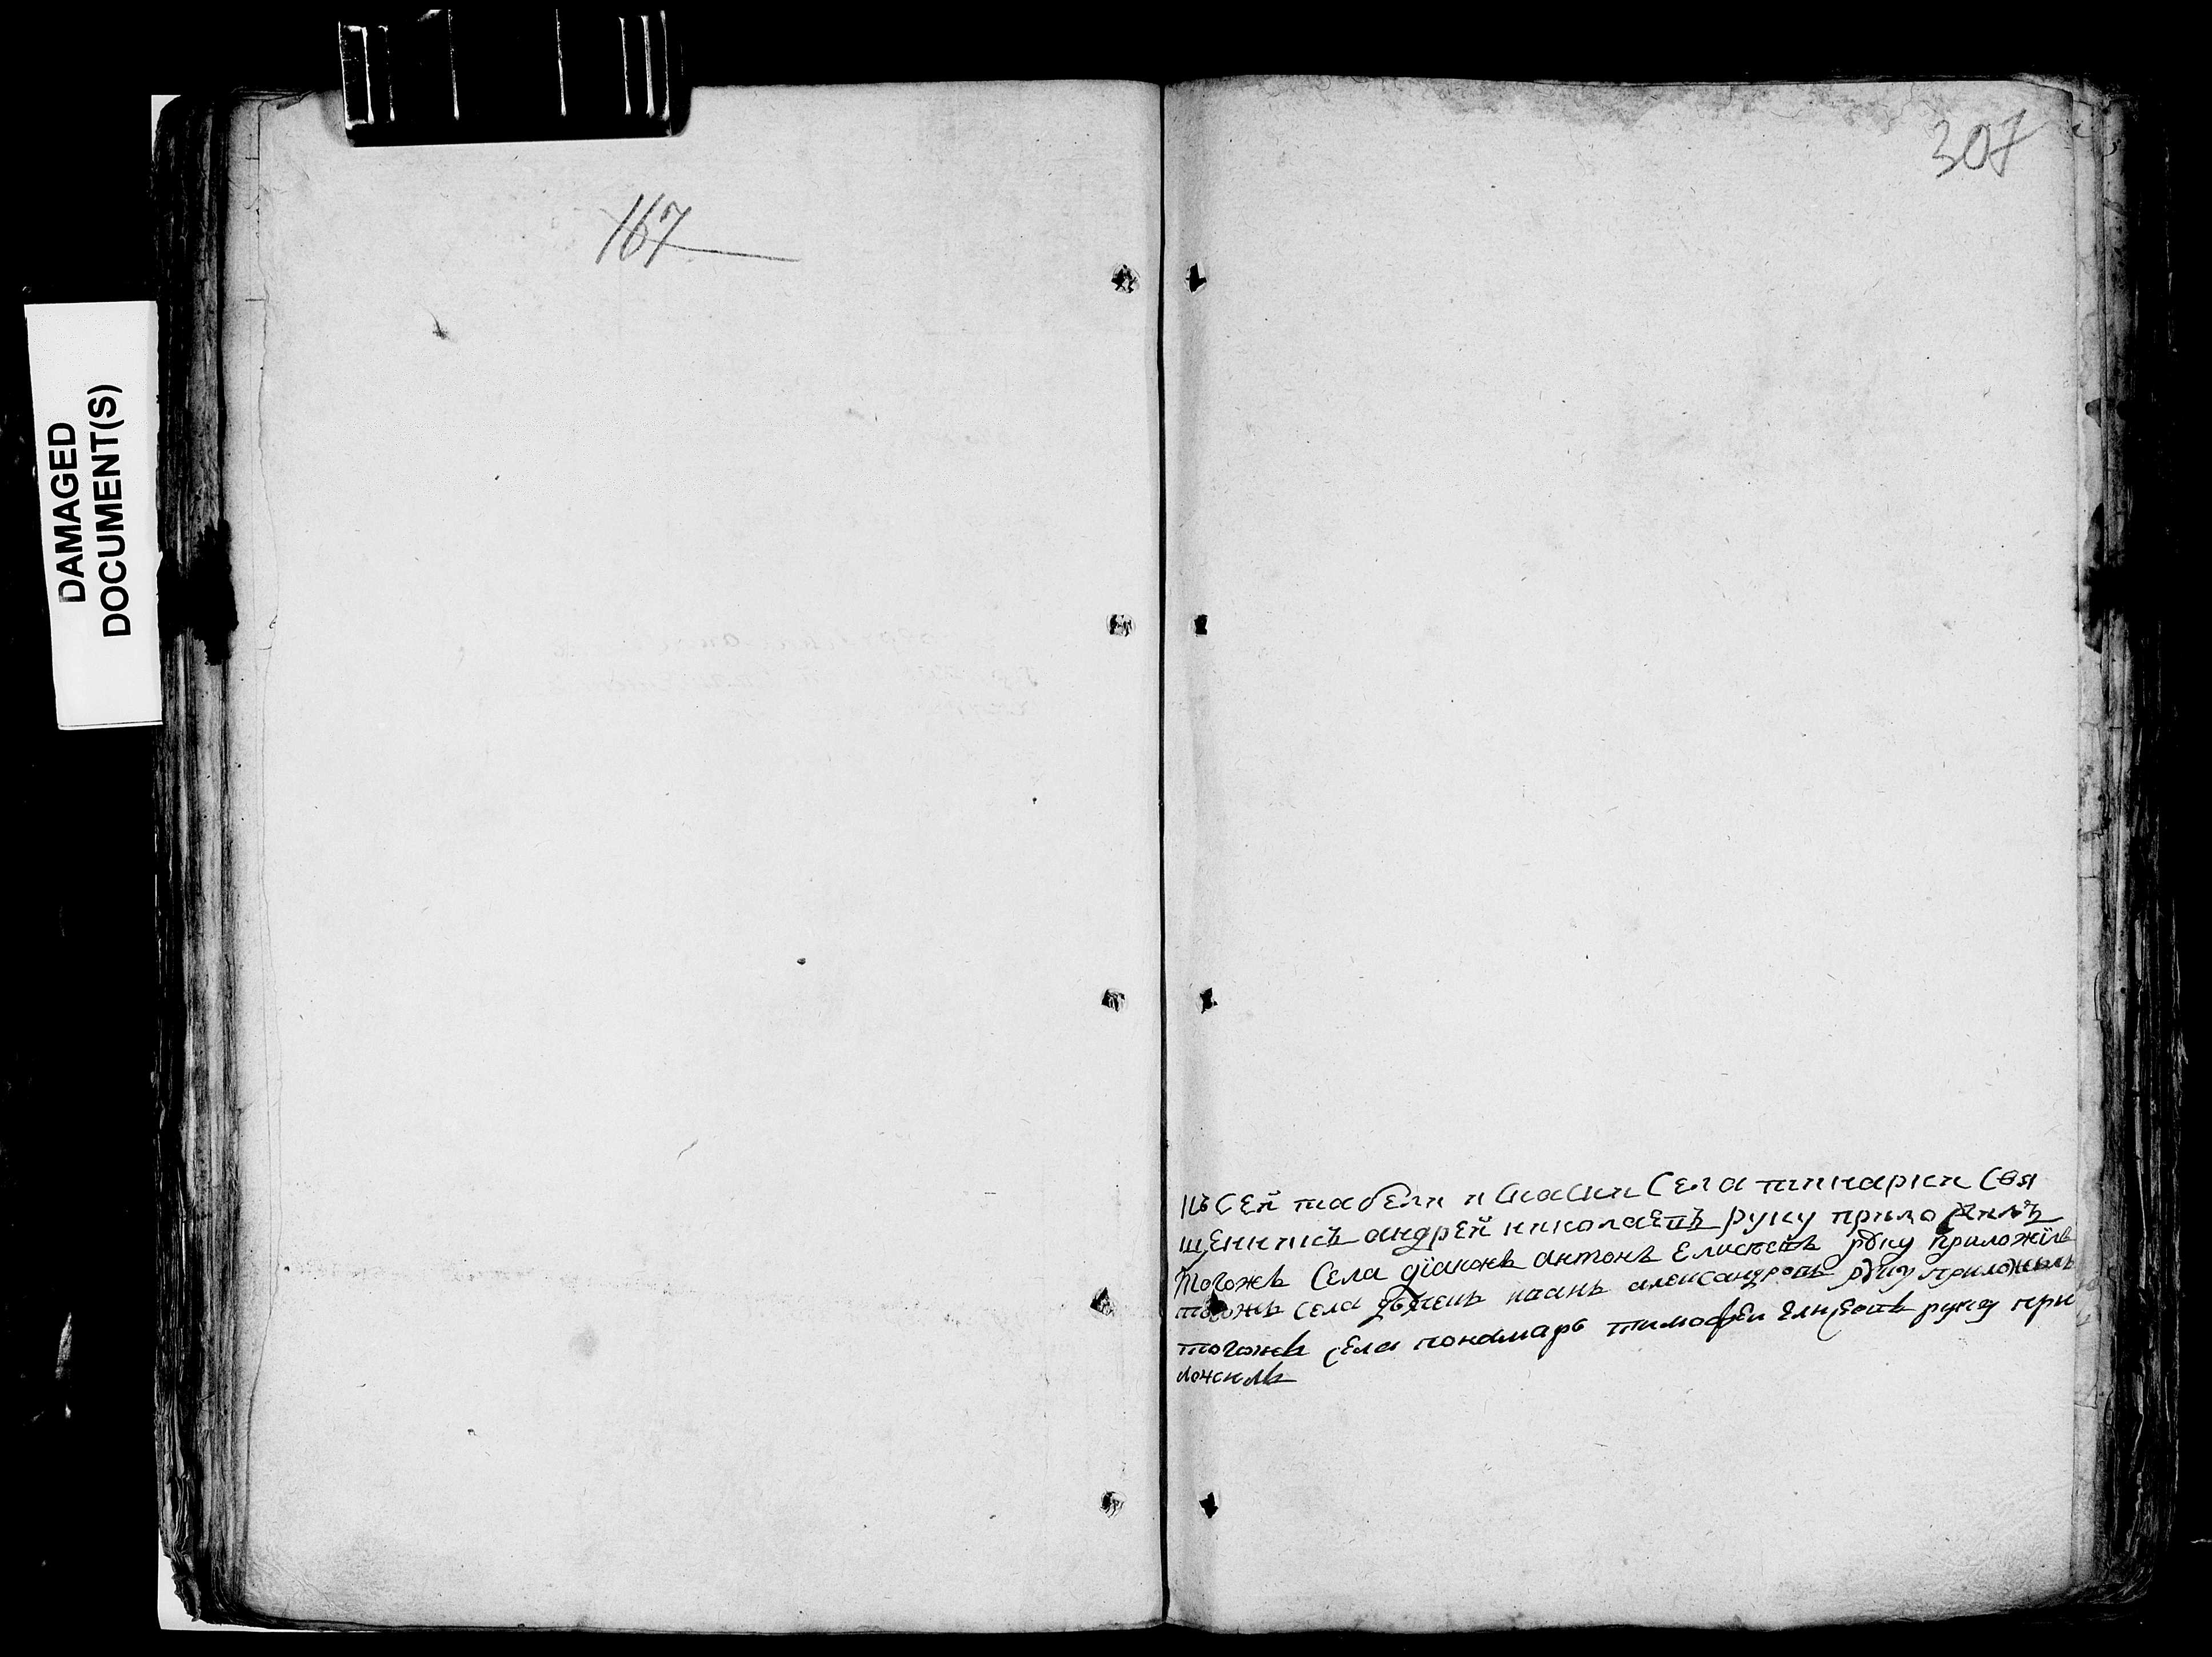 DAMAGED
DOCUMENT(S)
167
307
къ сей табели и скаски села пичарки свя
щенникъ андрей николаевъ руку приложилъ
тогожъ села дїаконъ антонъ елисеевъ руку приложїлъ
тогожъ села дьячекъ иванъ александровъ руку приложилъ
тогожъ села пономарь тимофеи елисеевъ руку при
ложилъ